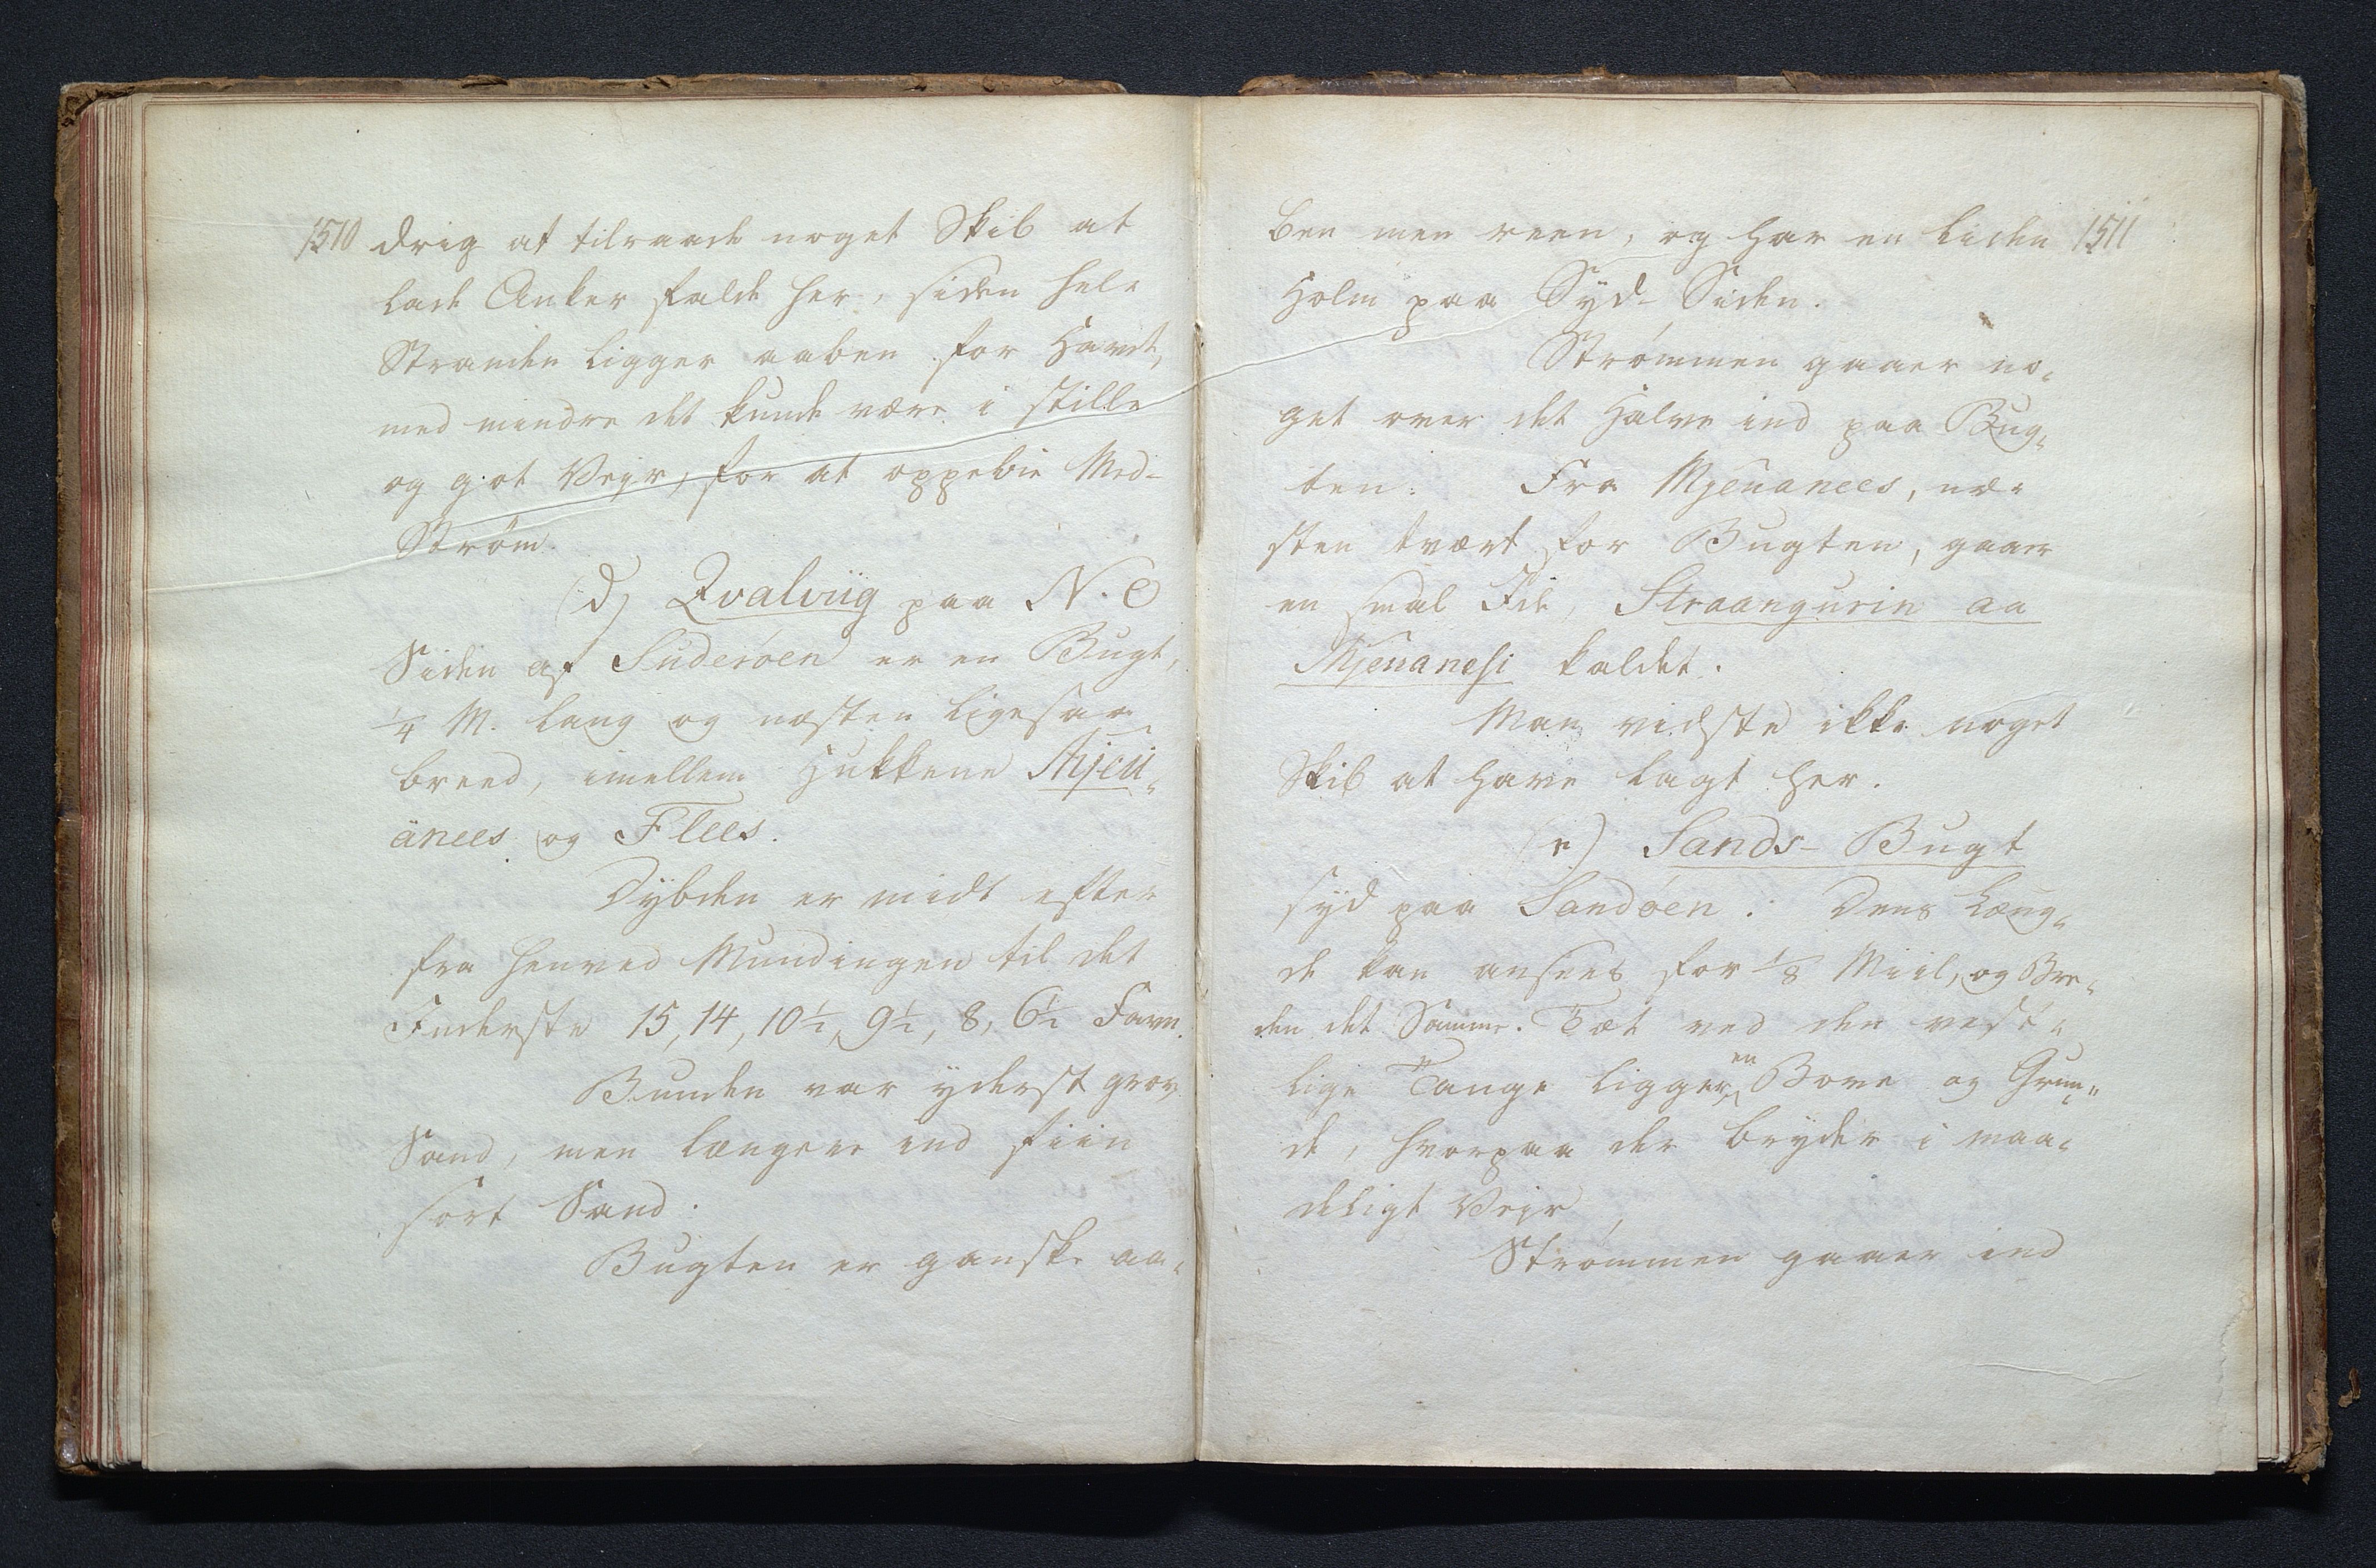 1510 drig at tilraade noget Skib at
lade Anker falde her, siden hele
Stranden ligger aaben for Havet,
med mindre det kunde være i stille
og got Veyr, for at oppebie Med-
Strøm.
(d) Qvalviig paa N. O
Siden af Suderöen er en Bugt,
1/4 M. lang og næsten ligesaa
breed, imellem Hukkene Mjeu-
änees og Flees.
Dybden er midt efter
fra henved Mundingen til det
Inderste 15, 14, 10½, 9½, 8, 6½ Favn.
Bunden var yderst grov
Sand, men længere ind fiin
sort Sand.
Bugten er ganske aa-
ben men reen, og har en liden 1511
Holm paa Syd-Siden.
Strømmen gaaer no-
get over det Halve ind paa Bug-
ten. Fra Mjeuanees, næ-
sten tvært for Bugten, gaaer
en smal Ide, Straangurin aa
Mjeuanesi kaldet.
Man vidste ikke noget
Skib at have lagt her.
(e) Sands-Bugt
syd paa Sandöen. Dens Læng-
de kan ansees for 1/8 Miil, og Bre-
den det Samme. Tæt ved den vest-
lige Tange ligger en Bove og Grun-
de, hvorpaa der bryder i maa-
deligt Veyr
Strømmen gaaer ind